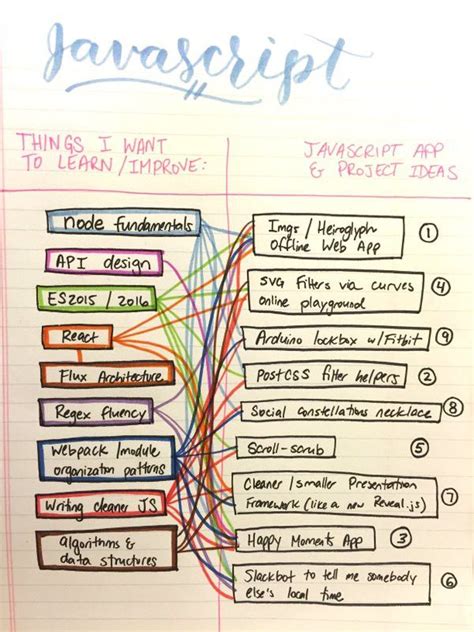 Javascript
THINGS I WANT
TO LEARN/IMPROVE:
JAVASCRIPT APP
& PROJECT IDEAS
node fundamentals
API design
ES2015 / 2016
React
Flux Architecture
Regex fluency
Webpack /module
organization patterns
Writing cleaner JS
algorithms &
data structures
Imgs / Heiroglyph
Offline Web App
①
SVG Filters via curves
online playground
④
Arduino lockbox w/Fitbit
⑨
PostCSS filter helpers
②
Social constellations necklace
⑧
Scroll-scrub
⑤
Cleaner /smaller Presentation
Framework (like a new Reveal.js)
⑦
Happy Moments App
③
Slackbot to tell me somebody
else's local time
⑥